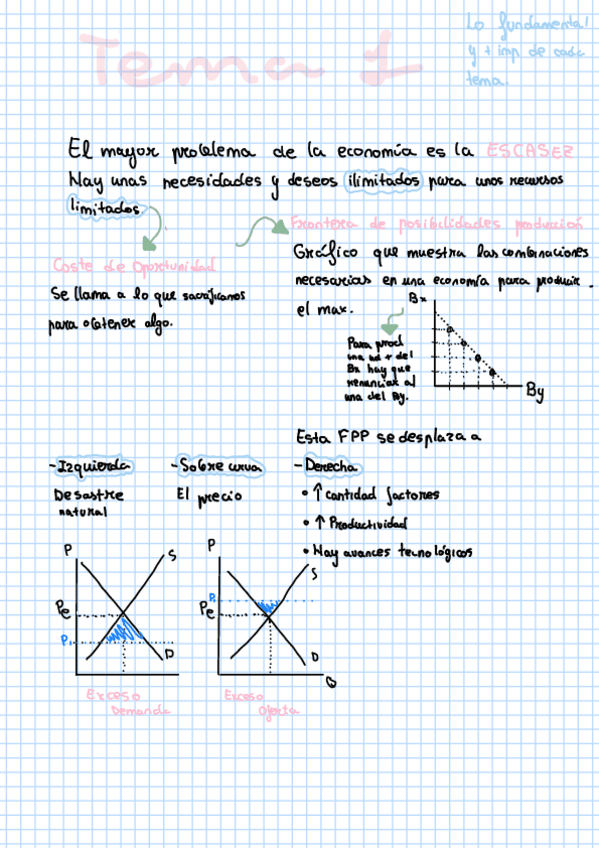 Tema 1
Lo fundamental
y + imp de cada
tema.
El mayor problema de la economía es la ESCASEZ
Hay unas necesidades y deseos ilimitados para unos recursos
limitados.
Coste de Oportunidad
Se llama a lo que sacrificamos
para obtener algo.
Frontera de posibilidades producción
Gráfico que muestra las combinaciones
necesarias en una economía para producir
el max.
Bx
By
Para prod
una ud + del
Bx hay que
renunciar al
una del By.
Esta FPP se desplaza a
-Izquierda
Desastre
natural
-Sobre curva
El precio
-Derecha
• ↑ cantidad factores
• ↑ Productividad
• Hay avances tecnológicos
P
S
Pe
P1
D
Exceso
Demanda
P
S
P1
Pe
D
Q
Exceso
Oferta